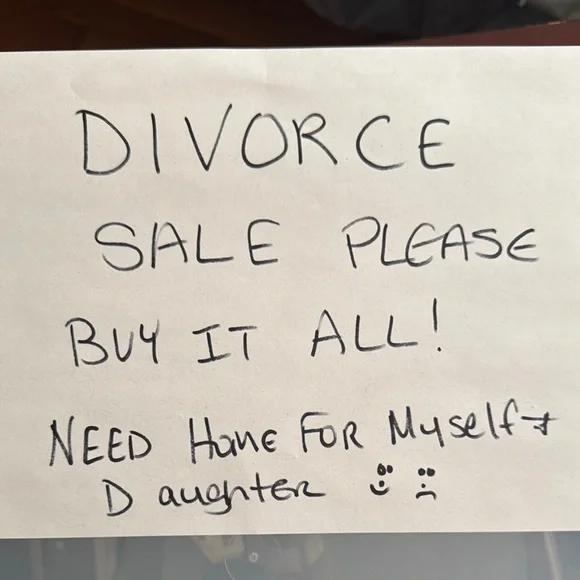 DIVORCE
SALE PLEASE
BUY IT ALL!
NEED Home FOR Myself +
Daughter